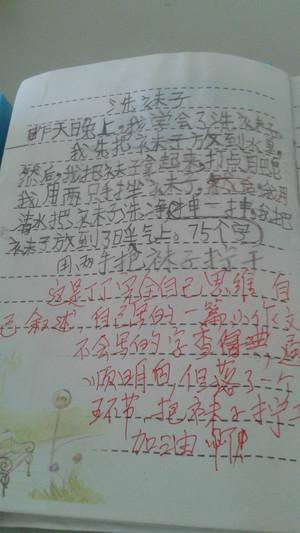 洗袜子
昨天晚上，我学会了洗袜子。
我先把袜子放到水里。
然后，我把袜子拿起来，打点白肥
我用两只手搓袜子，完了后，我用
清水把袜子洗净，抻一抻，我把
袜子放到了暖气上。75个字
用两手把袜子拧干
这是丁丁完全自己思维，自
己叙述，自己写的一篇小作文
不会写的字查字典，还
顺明的，但落了一个
环节，把袜子拧干
加油啊！